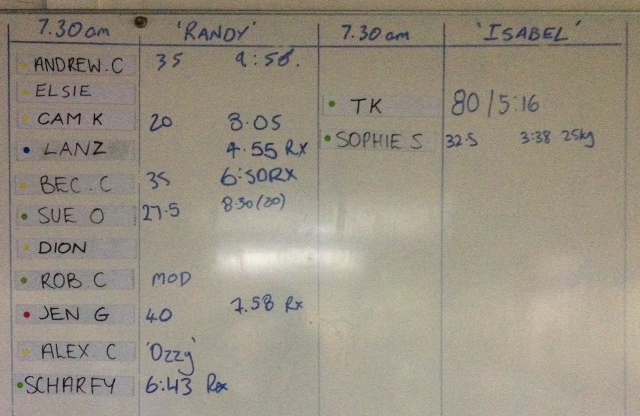 7.30am 'RANDY' 7.30am 'ISABEL'
ANDREW.C 35 9:56.
ELSIE
TK 80/5:16
CAM K 20 8.05
SOPHIE S 32.5 3:38 25kg
LANZ 4.55 Rx
BEC.C 35 6:50RX
SUE O 27.5 8:30(20)
DION
ROB.C MOD
JEN G 40 7.58 Rx
ALEX C 'Ozzy'
SCHARFY 6:43 Rx